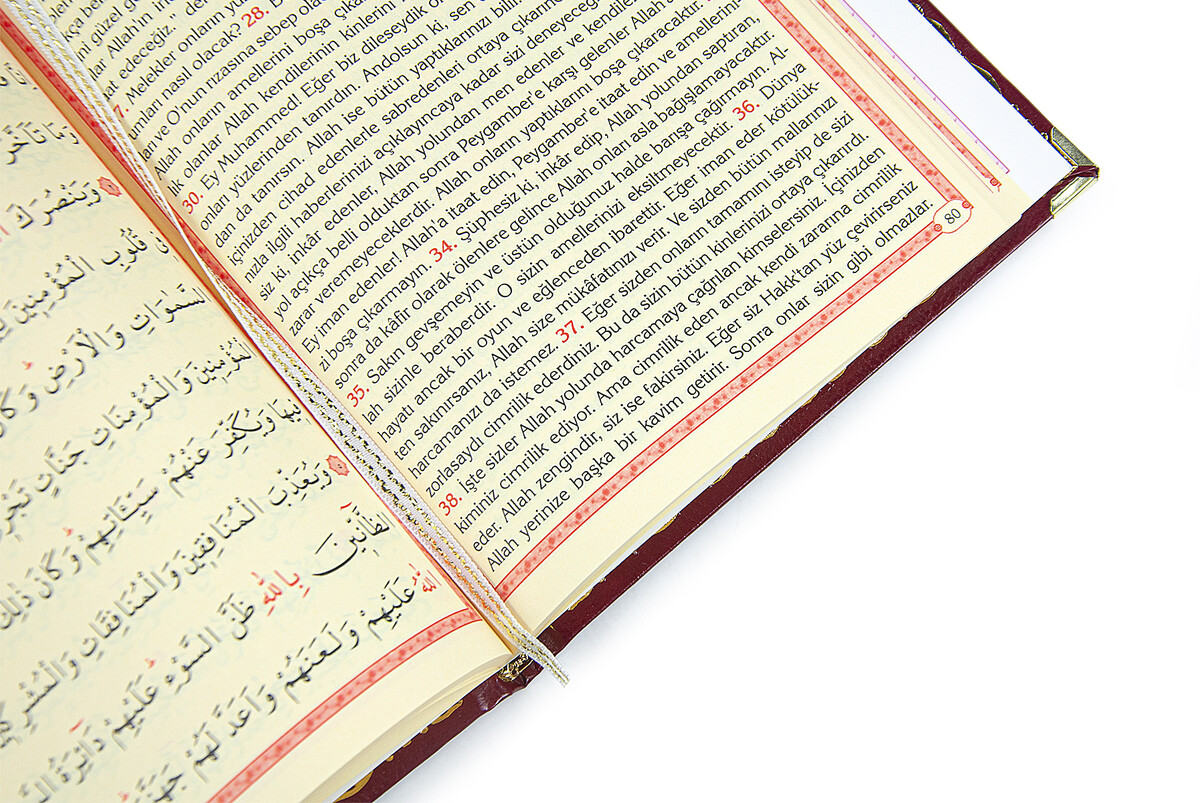 Allah'ın
edeceğiz.„
Melekler onların
nasıl olacak? 28.
ve O'nun rızasına sebep
Allah onların amellerini boşa
lik olanlar Allah kendilerinin kinlerini
30. Ey Muhammed! Eğer biz dileseydik
onları yüzlerinden tanırdın. Andolsun ki, sen
dan da tanırsın. Allah ise bütün yaptıklarınızı
içinizden cihad edenlerle sabredenleri ortaya
nızla ilgili haberlerinizi açıklayıncaya kadar sizi
siz ki, inkâr edenler, Allah yolundan men edenler ve
yol açıkça belli olduktan sonra Peygamber'e karşı gelenler
zarar veremeyeceklerdir. Allah onların yaptıklarını boşa çıkaracaktır.
Ey iman edenler! Allah'a itaat edin, Peygamber'e itaat edin ve amellerini-
zi boşa çıkarmayın. 34. Şüphesiz ki, inkâr edip, Allah yolundan saptıran,
sonra da kâfir olarak ölenlere gelince Allah onları asla bağışlamayacaktır.
35. Sakın gevşemeyin ve üstün olduğunuz halde barışa çağırmayın. Al-
lah sizinle beraberdir. O sizin amellerinizi eksiltmeyecektir. 36. Dünya
hayatı ancak bir oyun ve eğlenceden ibarettir. Eğer iman eder kötülük-
ten sakınırsanız, Allah size mükâfatınızı verir. Ve sizden bütün mallarınızı
harcamanızı da istemez. 37. Eğer sizden onların tamamını isteyip de sizi
zorlasaydı cimrilik ederdiniz. Bu da sizin bütün kinlerinizi ortaya çıkarırdı.
38. İşte sizler Allah yolunda harcamaya çağrılan kimselersiniz. İçinizden
kiminiz cimrilik ediyor. Ama cimrilik eden ancak kendi zararına cimrilik
eder. Allah zengindir, siz ise fakirsiniz. Eğer siz Hakk'tan yüz çevirirseniz
Allah yerinize başka bir kavim getirir. Sonra onlar sizin gibi olmazlar.
80
تَاَخَّرَ
وَيَنْصُرَكَ
قُلُوبِ الْمُؤْمِنِينَ
السَّمٰوَاتِ وَالْاَرْضِ
الْمُؤْمِنِينَ وَالْمُؤْمِنَاتِ جَنَّاتٍ
فِيهَا وَيُكَفِّرَ عَنْهُمْ سَيِّـَٔاتِهِمْ وَكَانَ ذٰلِكَ
وَيُعَذِّبَ الْمُنَافِقِينَ وَالْمُنَافِقَاتِ
الظَّآنِّينَ بِاللّٰهِ ظَنَّ السَّوْءِ عَلَيْهِمْ دَآئِرَةُ
اللّٰهُ عَلَيْهِمْ وَلَعَنَهُمْ وَاَعَدَّ لَهُمْ